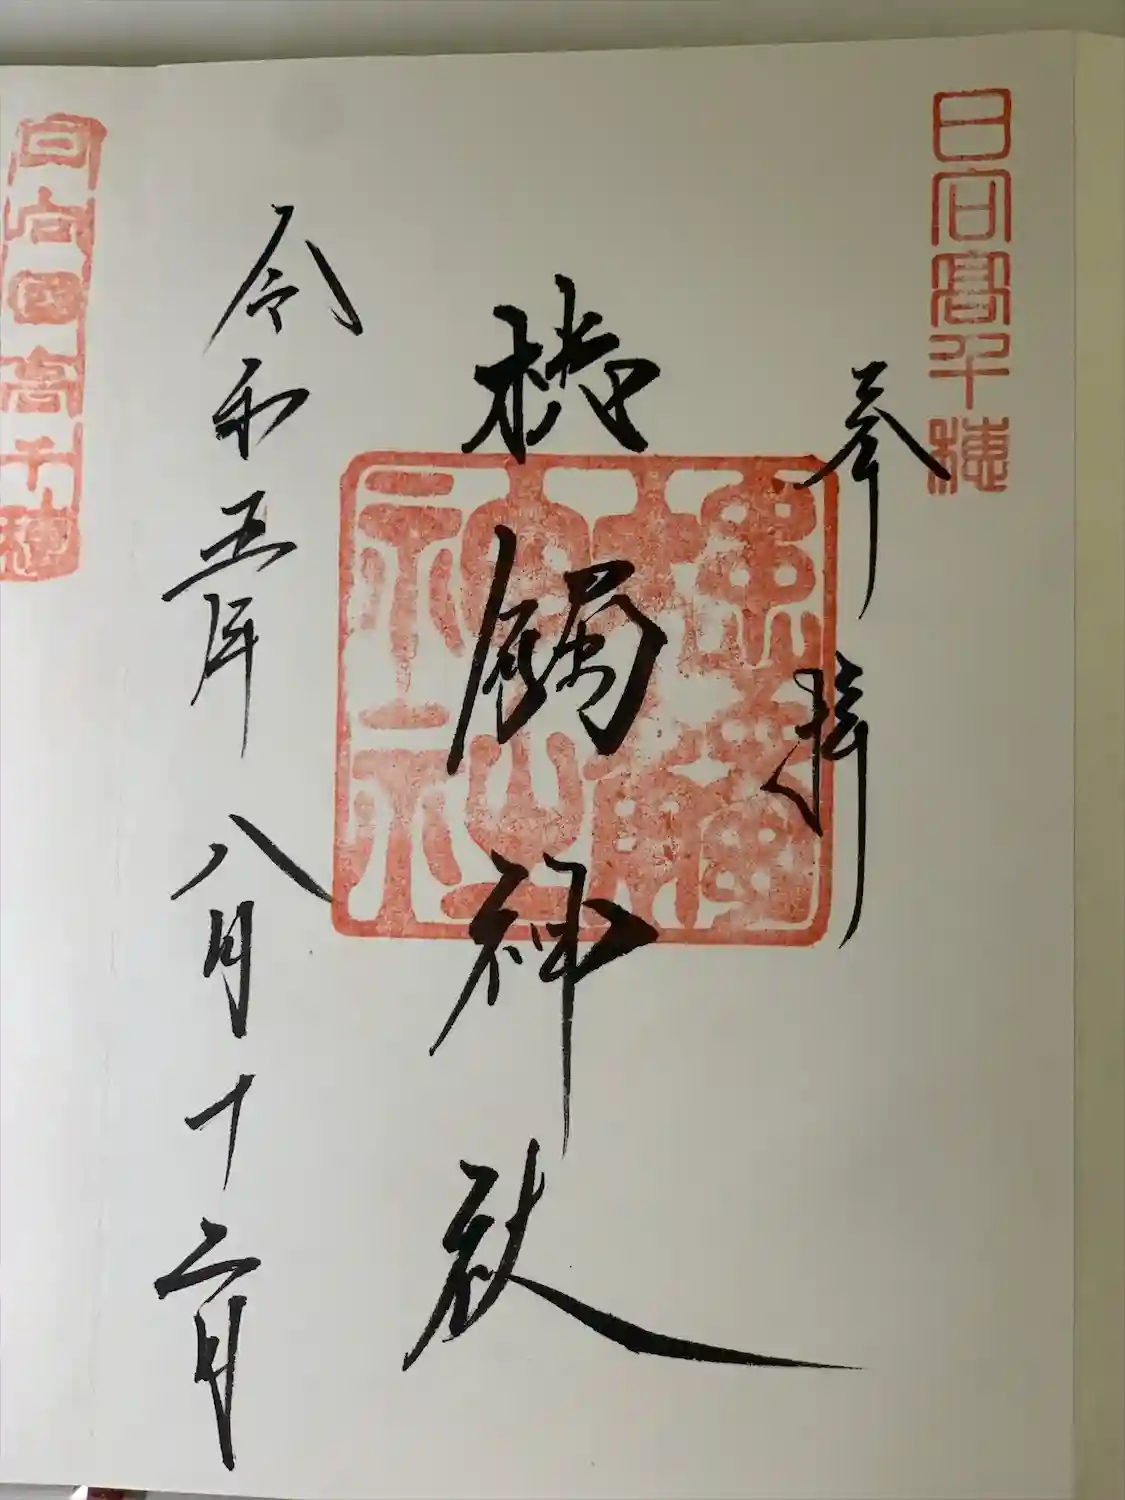 日向髙千穂
奉拝
槵觸神社
槵觸神社
令和五年八月十二日
日向國高千穂